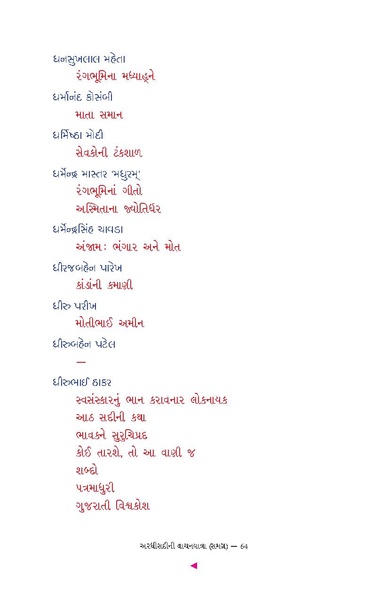 ધનસુખલાલ મહેતા
રંગભૂમિના મધ્યાહ્ને
ધર્માનંદ કોસંબી
માતા સમાન
ધર્મિષ્ઠા મોદી
સેવકોની ટંકશાળ
ધર્મેન્દ્ર માસ્તર ‘મધુરમ્’
રંગભૂમિનાં ગીતો
અસ્મિતાના જ્યોતિર્ધર
ધર્મેન્દ્રસિંહ ચાવડા
અંજામ : ભંગાર અને મોત
ધીરજબહેન પારેખ
કાંડાંની કમાણી
ધીરુ પરીખ
મોતીભાઈ અમીન
ધીરુબહેન પટેલ
—
ધીરુભાઈ ઠાકર
સ્વસંસ્કારનું ભાન કરાવનાર લોકનાયક
આઠ સદીની કથા
ભાવકને સુરુચિપ્રદ
કોઈ તારશે, તો આ વાણી જ
શબ્દો
પત્રમાધુરી
ગુજરાતી વિશ્વકોશ
અરધીસદીની વાચનયાત્રા (સમગ્ર) — 64